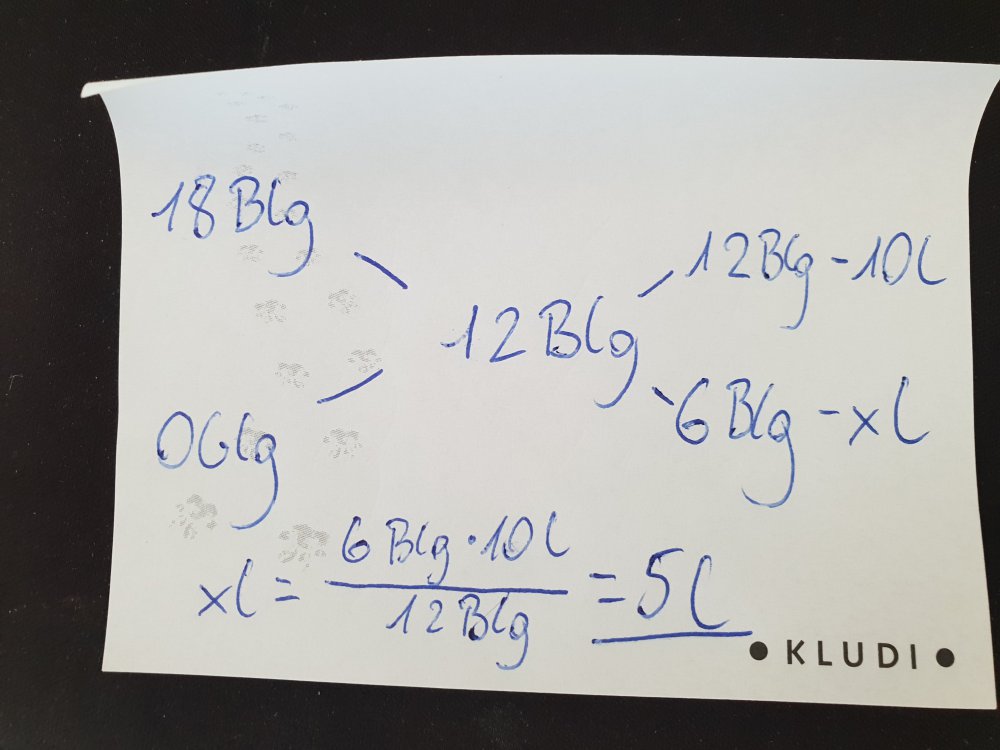 18 Blg
12 Blg - 10 l
12 Blg
6 Blg - x l
0 Blg
xl = 6 Blg · 10 l / 12 Blg = 5 l
• KLUDI •